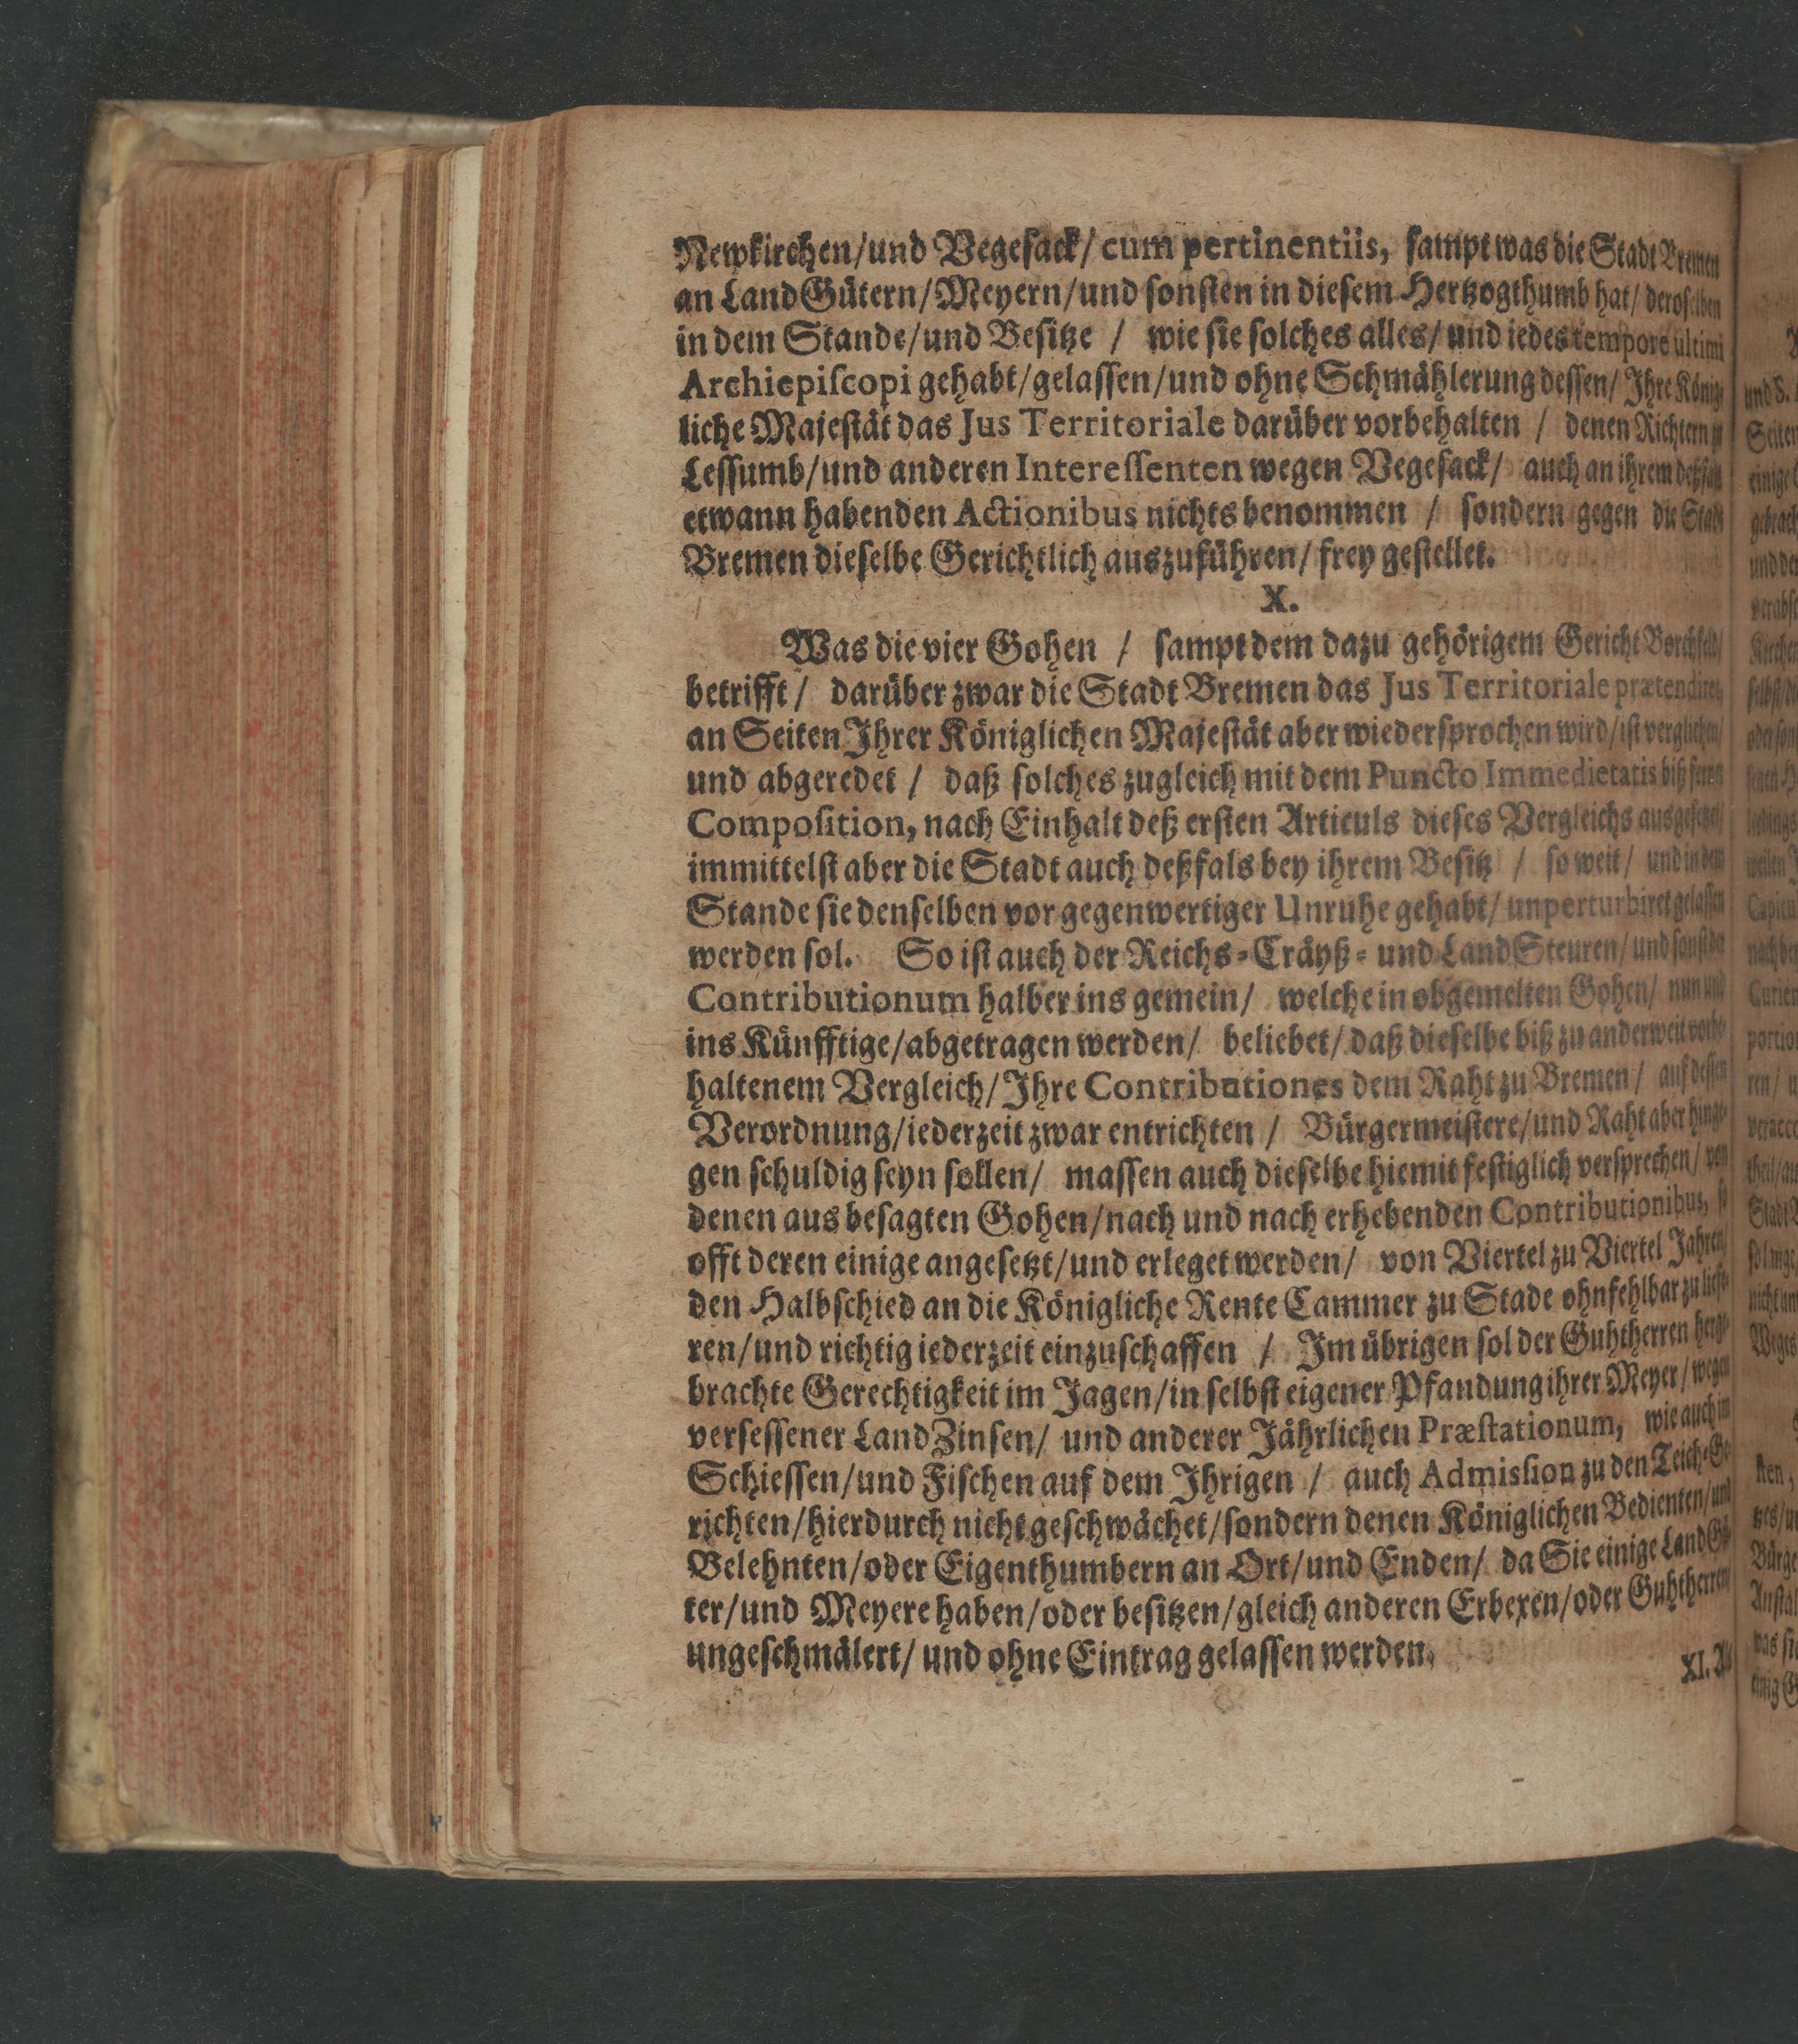 Newkirchen/und Vegesack/ cum pertinentiis, sampt was die Stadt Bremen
an Land Gütern/Meyern/und sonsten in diesem Hertzogthumb hat/ deroselben
in dem Stande/und Besitze / wie sie solches alles/ und iedes tempore ultimi
Archiepiscopi gehabt/gelassen/und ohne Schmählerung dessen/ Ihre König-
liche Majestät das Jus Territoriale darüber vorbehalten / denen Richtern zu
Lessumb/und anderen Interessenten wegen Vegesack/ auch an ihrem deßfals
etwann habenden Actionibus nichts benommen / sondern gegen die Stadt
Bremen dieselbe Gerichtlich auszuführen/ frey gestellet.
X.
Was die vier Gohen / sampt dem dazu gehörigem Gericht Borchfeld/
betrifft/ darüber zwar die Stadt Bremen das Jus Territoriale prætendiret,
an Seiten Ihrer Königlichen Majestät aber wiedersprochen wird/ist verglichen/
und abgeredet / daß solches zugleich mit dem Puncto Immedietatis biß ferner
Composition, nach Einhalt deß ersten Articuls dieses Vergleichs ausgesetzet/
immittelst aber die Stadt auch deßfals bey ihrem Besitz / so weit/ und in dem
Stande sie denselben vor gegenwertiger Unruhe gehabt/ unperturbiret gelassen
werden sol. So ist auch der Reichs-Cräyß- und Land Steuren/ und sonst der
Contributionum halber ins gemein/ welche in obgemelten Gohen/ nun und
ins Künfftige/abgetragen werden/ beliebet/ daß dieselbe biß zu anderweit vorbe-
haltenem Vergleich/Ihre Contributiones dem Raht zu Bremen/ auf dessen
Verordnung/iederzeit zwar entrichten / Bürgermeistere/und Raht aber hinge-
gen schuldig seyn sollen/ massen auch dieselbe hiemit festiglich versprechen/ von
denen aus besagten Gohen/nach und nach erhebenden Contributionibus, so
offt deren einige angesetzt/und erleget werden/ von Viertel zu Viertel Jahren/
den Halbschied an die Königliche Rente Cammer zu Stade ohnfehlbar zu liefe-
ren/und richtig iederzeit einzuschaffen / Im übrigen sol der Guhtherren herge-
brachte Gerechtigkeit im Jagen/in selbst eigener Pfandung ihrer Meyer/ wegen
versessener Land Zinsen/ und anderer Jährlichen Præstationum, wie auch im
Schiessen/und Fischen auf dem Ihrigen / auch Admission zu den Teich-Ge-
richten/hierdurch nicht geschwächet/sondern denen Königlichen Bedienten/und
Belehnten/oder Eigenthumbern an Ort/und Enden/ da Sie einige Land Gü-
ter/und Meyere haben/oder besitzen/gleich anderen Erbexen/oder Guhtherren
ungeschmälert/ und ohne Eintrag gelassen werden.
XI.